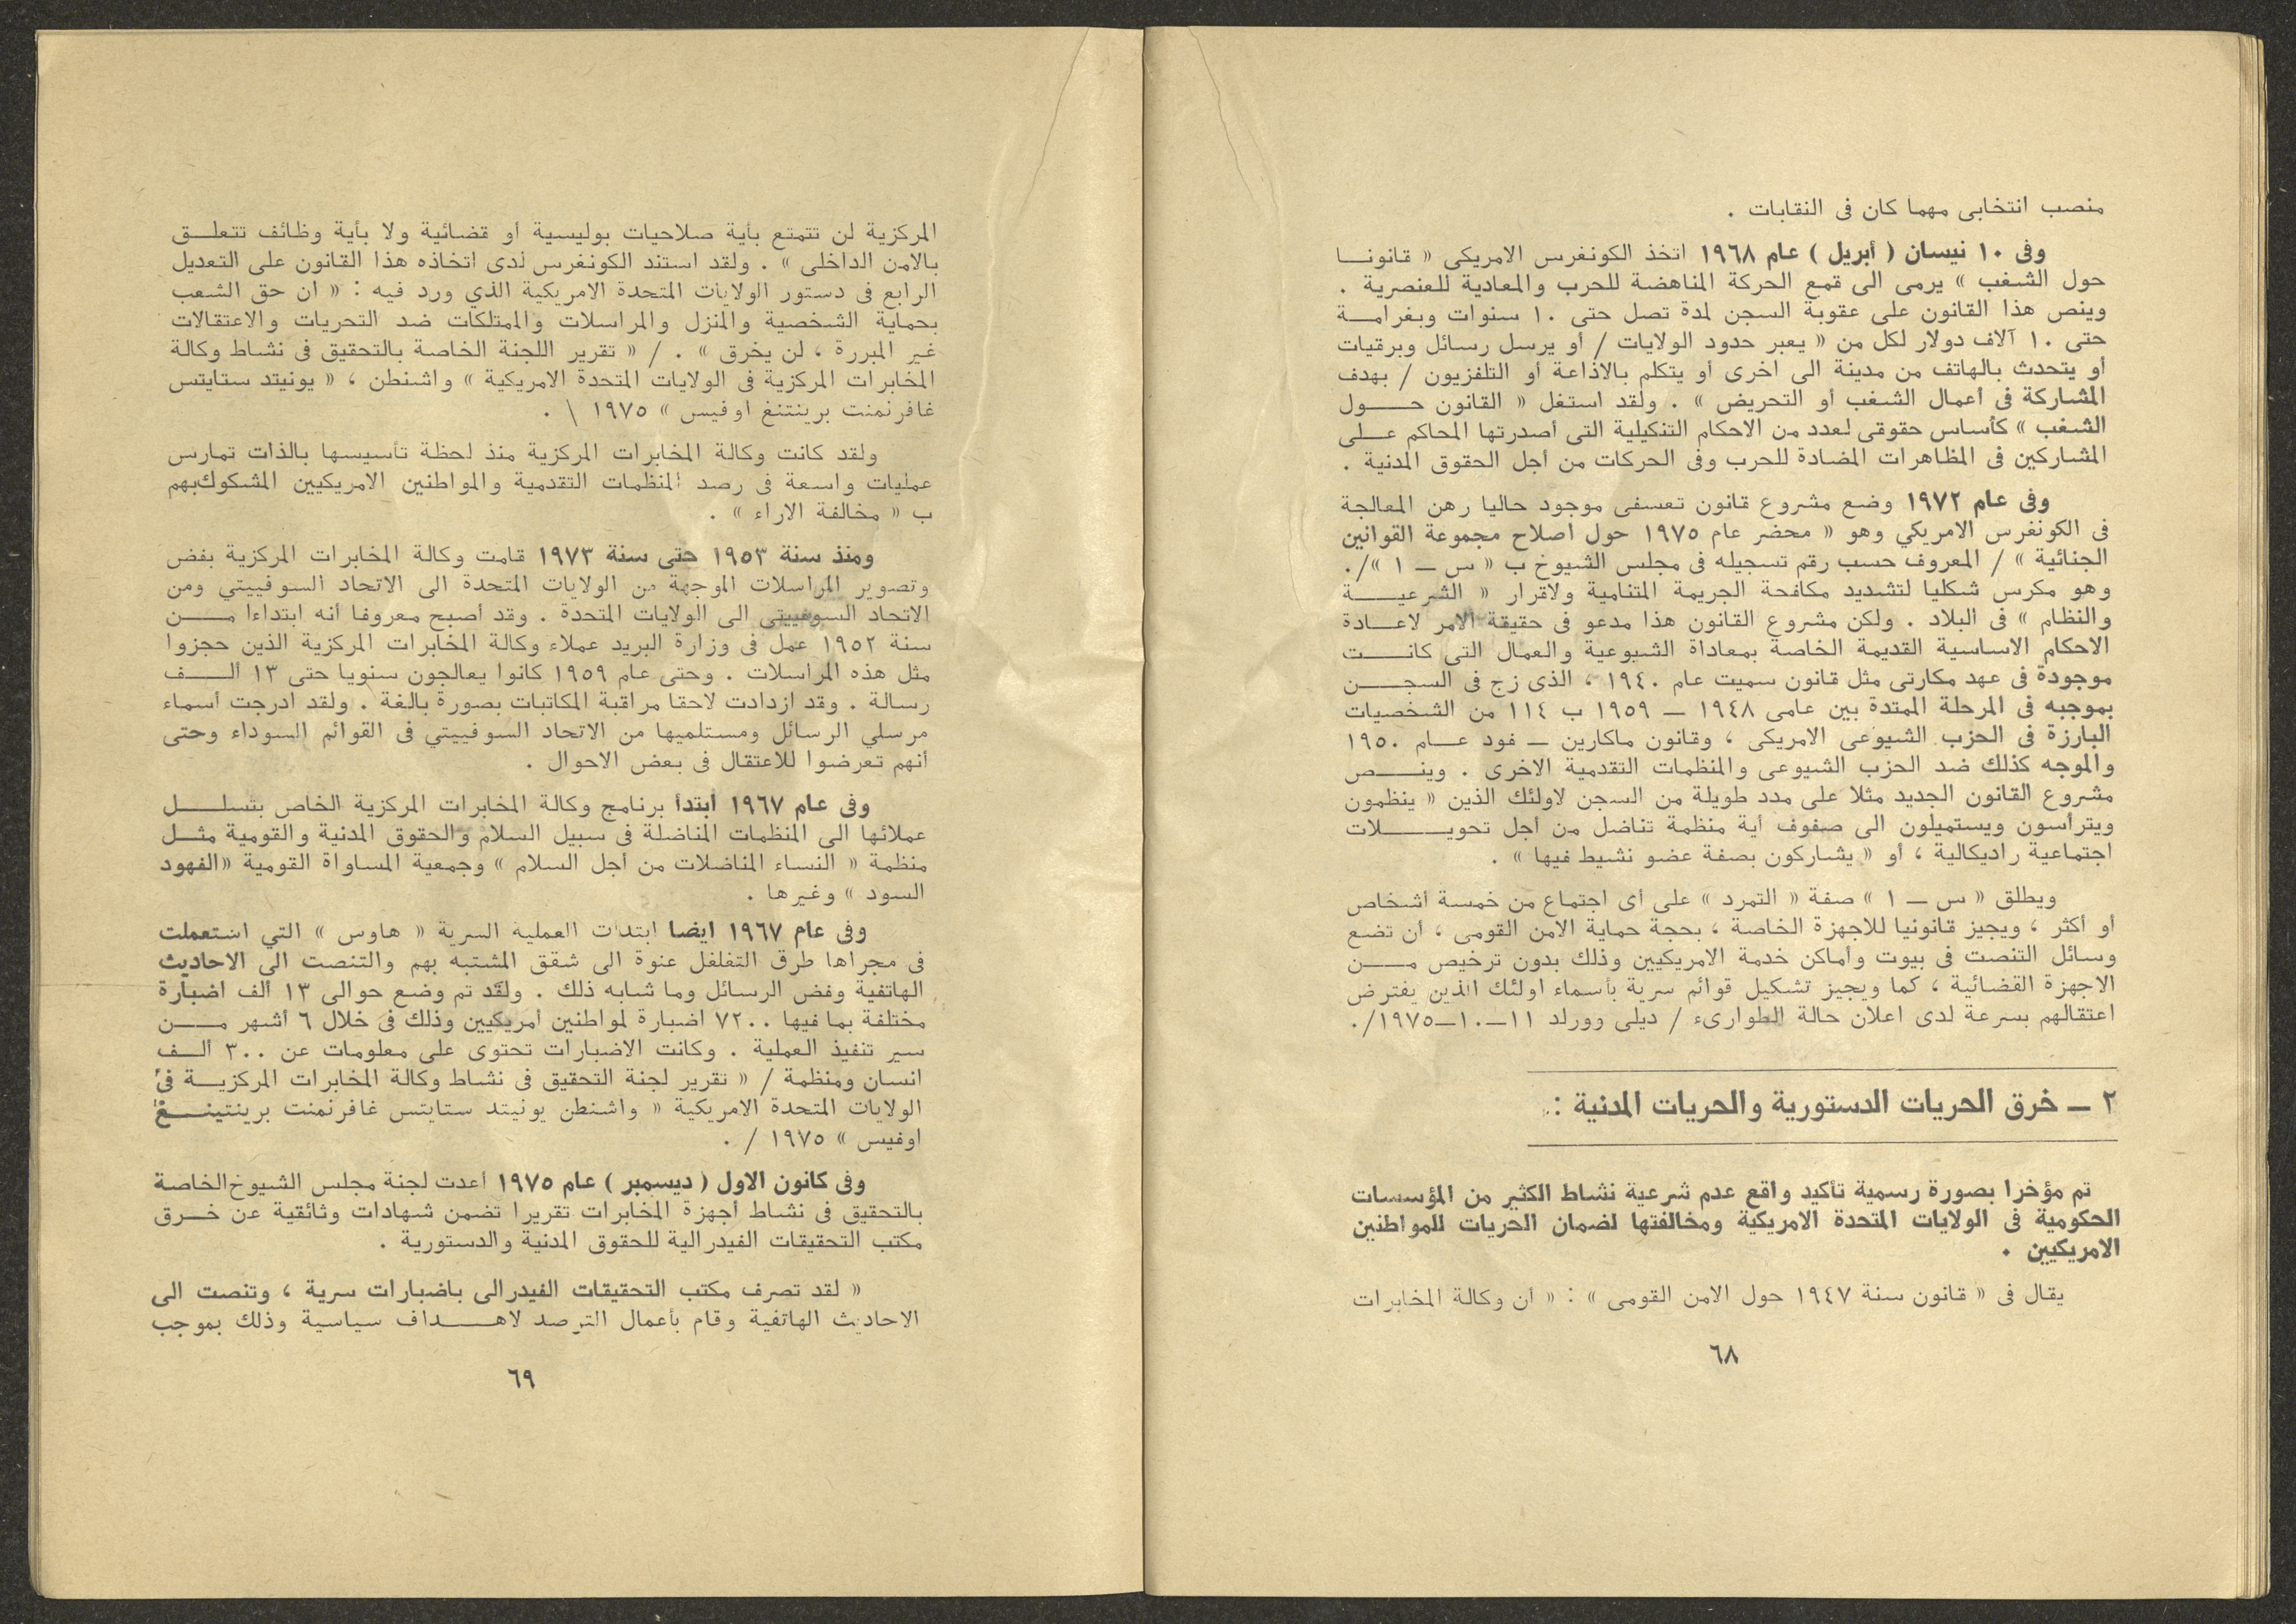 منصب انتخابى مهما كان فى النقابات .
وفى ١٠ نيسان ( أبريل ) عام ١٩٦٨ اتخذ الكونغرس الامريكى « قانونـــا
حول الشغب » يرمى الى قمع الحركة المناهضة للحرب والمعادية للعنصرية .
وينص هذا القانون على عقوبة السجن لمدة تصل حتى ١٠ سنوات وبغرامـــة
حتى ١٠ آلاف دولار لكل من « يعبر حدود الولايات / أو يرسل رسائل وبرقيات
أو يتحدث بالهاتف من مدينة الى اخرى أو يتكلم بالاذاعة أو التلفزيون / بهدف
المشاركة فى أعمال الشغب أو التحريض » . ولقد استغل « القانون حـــول
الشغب » كأساس حقوقى لعدد من الاحكام التنكيلية التى أصدرتها المحاكم عـــلى
المشاركين فى المظاهرات المضادة للحرب وفى الحركات من أجل الحقوق المدنية .
وفى عام ١٩٧٢ وضع مشروع قانون تعسفى موجود حاليا رهن المعالجة
فى الكونغرس الامريكي وهو « محضر عام ١٩٧٥ حول اصلاح مجموعة القوانين
الجنائية » / المعروف حسب رقم تسجيله فى مجلس الشيوخ ب « س ــ ١ »/.
وهو مكرس شكليا لتشديد مكافحة الجريمة المتنامية ولاقرار « الشرعيـــة
والنظام » فى البلاد . ولكن مشروع القانون هذا مدعو فى حقيقة الامر لاعـــادة
الاحكام الاساسية القديمة الخاصة بمعاداة الشيوعية والعمال التى كانـــت
موجودة فى عهد مكارتى مثل قانون سميت عام ١٩٤٠ ، الذى زج فى السجـــن
بموجبه فى المرحلة الممتدة بين عامى ١٩٤٨ ــ ١٩٥٩ ب ١١٤ من الشخصيات
البارزة فى الحزب الشيوعى الامريكى ، وقانون ماكارين ــ فود عـــام ١٩٥٠
والموجه كذلك ضد الحزب الشيوعى والمنظمات التقدمية الاخرى . وينـــص
مشروع القانون الجديد مثلا على مدد طويلة من السجن لاولئك الذين « ينظمون
ويترأسون ويستميلون الى صفوف أية منظمة تناضل من أجل تحويـــلات
اجتماعية راديكالية ، أو « يشاركون بصفة عضو نشيط فيها » .
ويطلق « س ــ ١ » صفة « التمرد » على أى اجتماع من خمسة أشخاص
أو أكثر ، ويجيز قانونيا للاجهزة الخاصة ، بحجة حماية الامن القومى ، أن تضع
وسائل التنصت فى بيوت وأماكن خدمة الامريكيين وذلك بدون ترخيص مـــن
الاجهزة القضائية ، كما ويجيز تشكيل قوائم سرية بأسماء اولئك الذين يفترض
اعتقالهم بسرعة لدى اعلان حالة الطوارىء / ديلى وورلد ١١ــ١٠ــ١٩٧٥/.
٢ ــ خرق الحريات الدستورية والحريات المدنية :
تم مؤخرا بصورة رسمية تأكيد واقع عدم شرعية نشاط الكثير من المؤسسات
الحكومية فى الولايات المتحدة الامريكية ومخالفتها لضمان الحريات للمواطنين
الامريكيين .
يقال فى « قانون سنة ١٩٤٧ حول الامن القومى » : « ان وكالة المخابرات
٦٨
المركزية لن تتمتع بأية صلاحيات بوليسية أو قضائية ولا بأية وظائف تتعلـــق
بالامن الداخلى » . ولقد استند الكونغرس لدى اتخاذه هذا القانون على التعديل
الرابع فى دستور الولايات المتحدة الامريكية الذي ورد فيه : « ان حق الشعب
بحماية الشخصية والمنزل والمراسلات والممتلكات ضد التحريات والاعتقالات
غير المبررة ، لن يخرق » . / « تقرير اللجنة الخاصة بالتحقيق فى نشاط وكالة
المخابرات المركزية فى الولايات المتحدة الامريكية » واشنطن ، « يونيتد ستايتس
غافرنمنت برينتنغ اوفيس » ١٩٧٥ \ .
ولقد كانت وكالة المخابرات المركزية منذ لحظة تأسيسها بالذات تمارس
عمليات واسعة فى رصد المنظمات التقدمية والمواطنين الامريكيين المشكوك بهم
ب « مخالفة الاراء » .
ومنذ سنة ١٩٥٣ حتى سنة ١٩٧٣ قامت وكالة المخابرات المركزية بفض
وتصوير المراسلات الموجهة من الولايات المتحدة الى الاتحاد السوفييتي ومن
الاتحاد السوفييتى الى الولايات المتحدة . وقد أصبح معروفا أنه ابتداءا مـــن
سنة ١٩٥٢ عمل فى وزارة البريد عملاء وكالة المخابرات المركزية الذين حجزوا
مثل هذه المراسلات . وحتى عام ١٩٥٩ كانوا يعالجون سنويا حتى ١٣ ألـــف
رسالة . وقد ازدادت لاحقا مراقبة المكاتبات بصورة بالغة . ولقد ادرجت أسماء
مرسلي الرسائل ومستلميها من الاتحاد السوفييتي فى القوائم السوداء وحتى
أنهم تعرضوا للاعتقال فى بعض الاحوال .
وفى عام ١٩٦٧ أبتدأ برنامج وكالة المخابرات المركزية الخاص بتسلـــل
عملائها الى المنظمات المناضلة فى سبيل السلام والحقوق المدنية والقومية مثـــل
منظمة « النساء المناضلات من أجل السلام » وجمعية المساواة القومية «الفهود
السود » وغيرها .
وفى عام ١٩٦٧ ايضا ابتدات العملية السرية « هاوس » التي استعملت
فى مجراها طرق التغلغل عنوة الى شقق المشتبه بهم والتنصت الى الاحاديث
الهاتفية وفض الرسائل وما شابه ذلك . ولقد تم وضع حوالى ١٣ ألف اضبارة
مختلفة بما فيها ٧٢٠٠ اضبارة لمواطنين أمريكيين وذلك فى خلال ٦ أشهر مـــن
سير تنفيذ العملية . وكانت الاضبارات تحتوى على معلومات عن ٣٠٠ ألـــف
انسان ومنظمة / « تقرير لجنة التحقيق فى نشاط وكالة المخابرات المركزيـــة فى
الولايات المتحدة الامريكية « واشنطن يونيتد ستايتس غافرنمنت برينتينـــغ
اوفيس » ١٩٧٥ / .
وفى كانون الاول ( ديسمبر ) عام ١٩٧٥ أعدت لجنة مجلس الشيوخ الخاصة
بالتحقيق فى نشاط أجهزة المخابرات تقريرا تضمن شهادات وثائقية عن خـــرق
مكتب التحقيقات الفيدرالية للحقوق المدنية والدستورية .
« لقد تصرف مكتب التحقيقات الفيدرالى باضبارات سرية ، وتنصت الى
الاحاديث الهاتفية وقام بأعمال الترصد لاهـــداف سياسية وذلك بموجب
٦٩